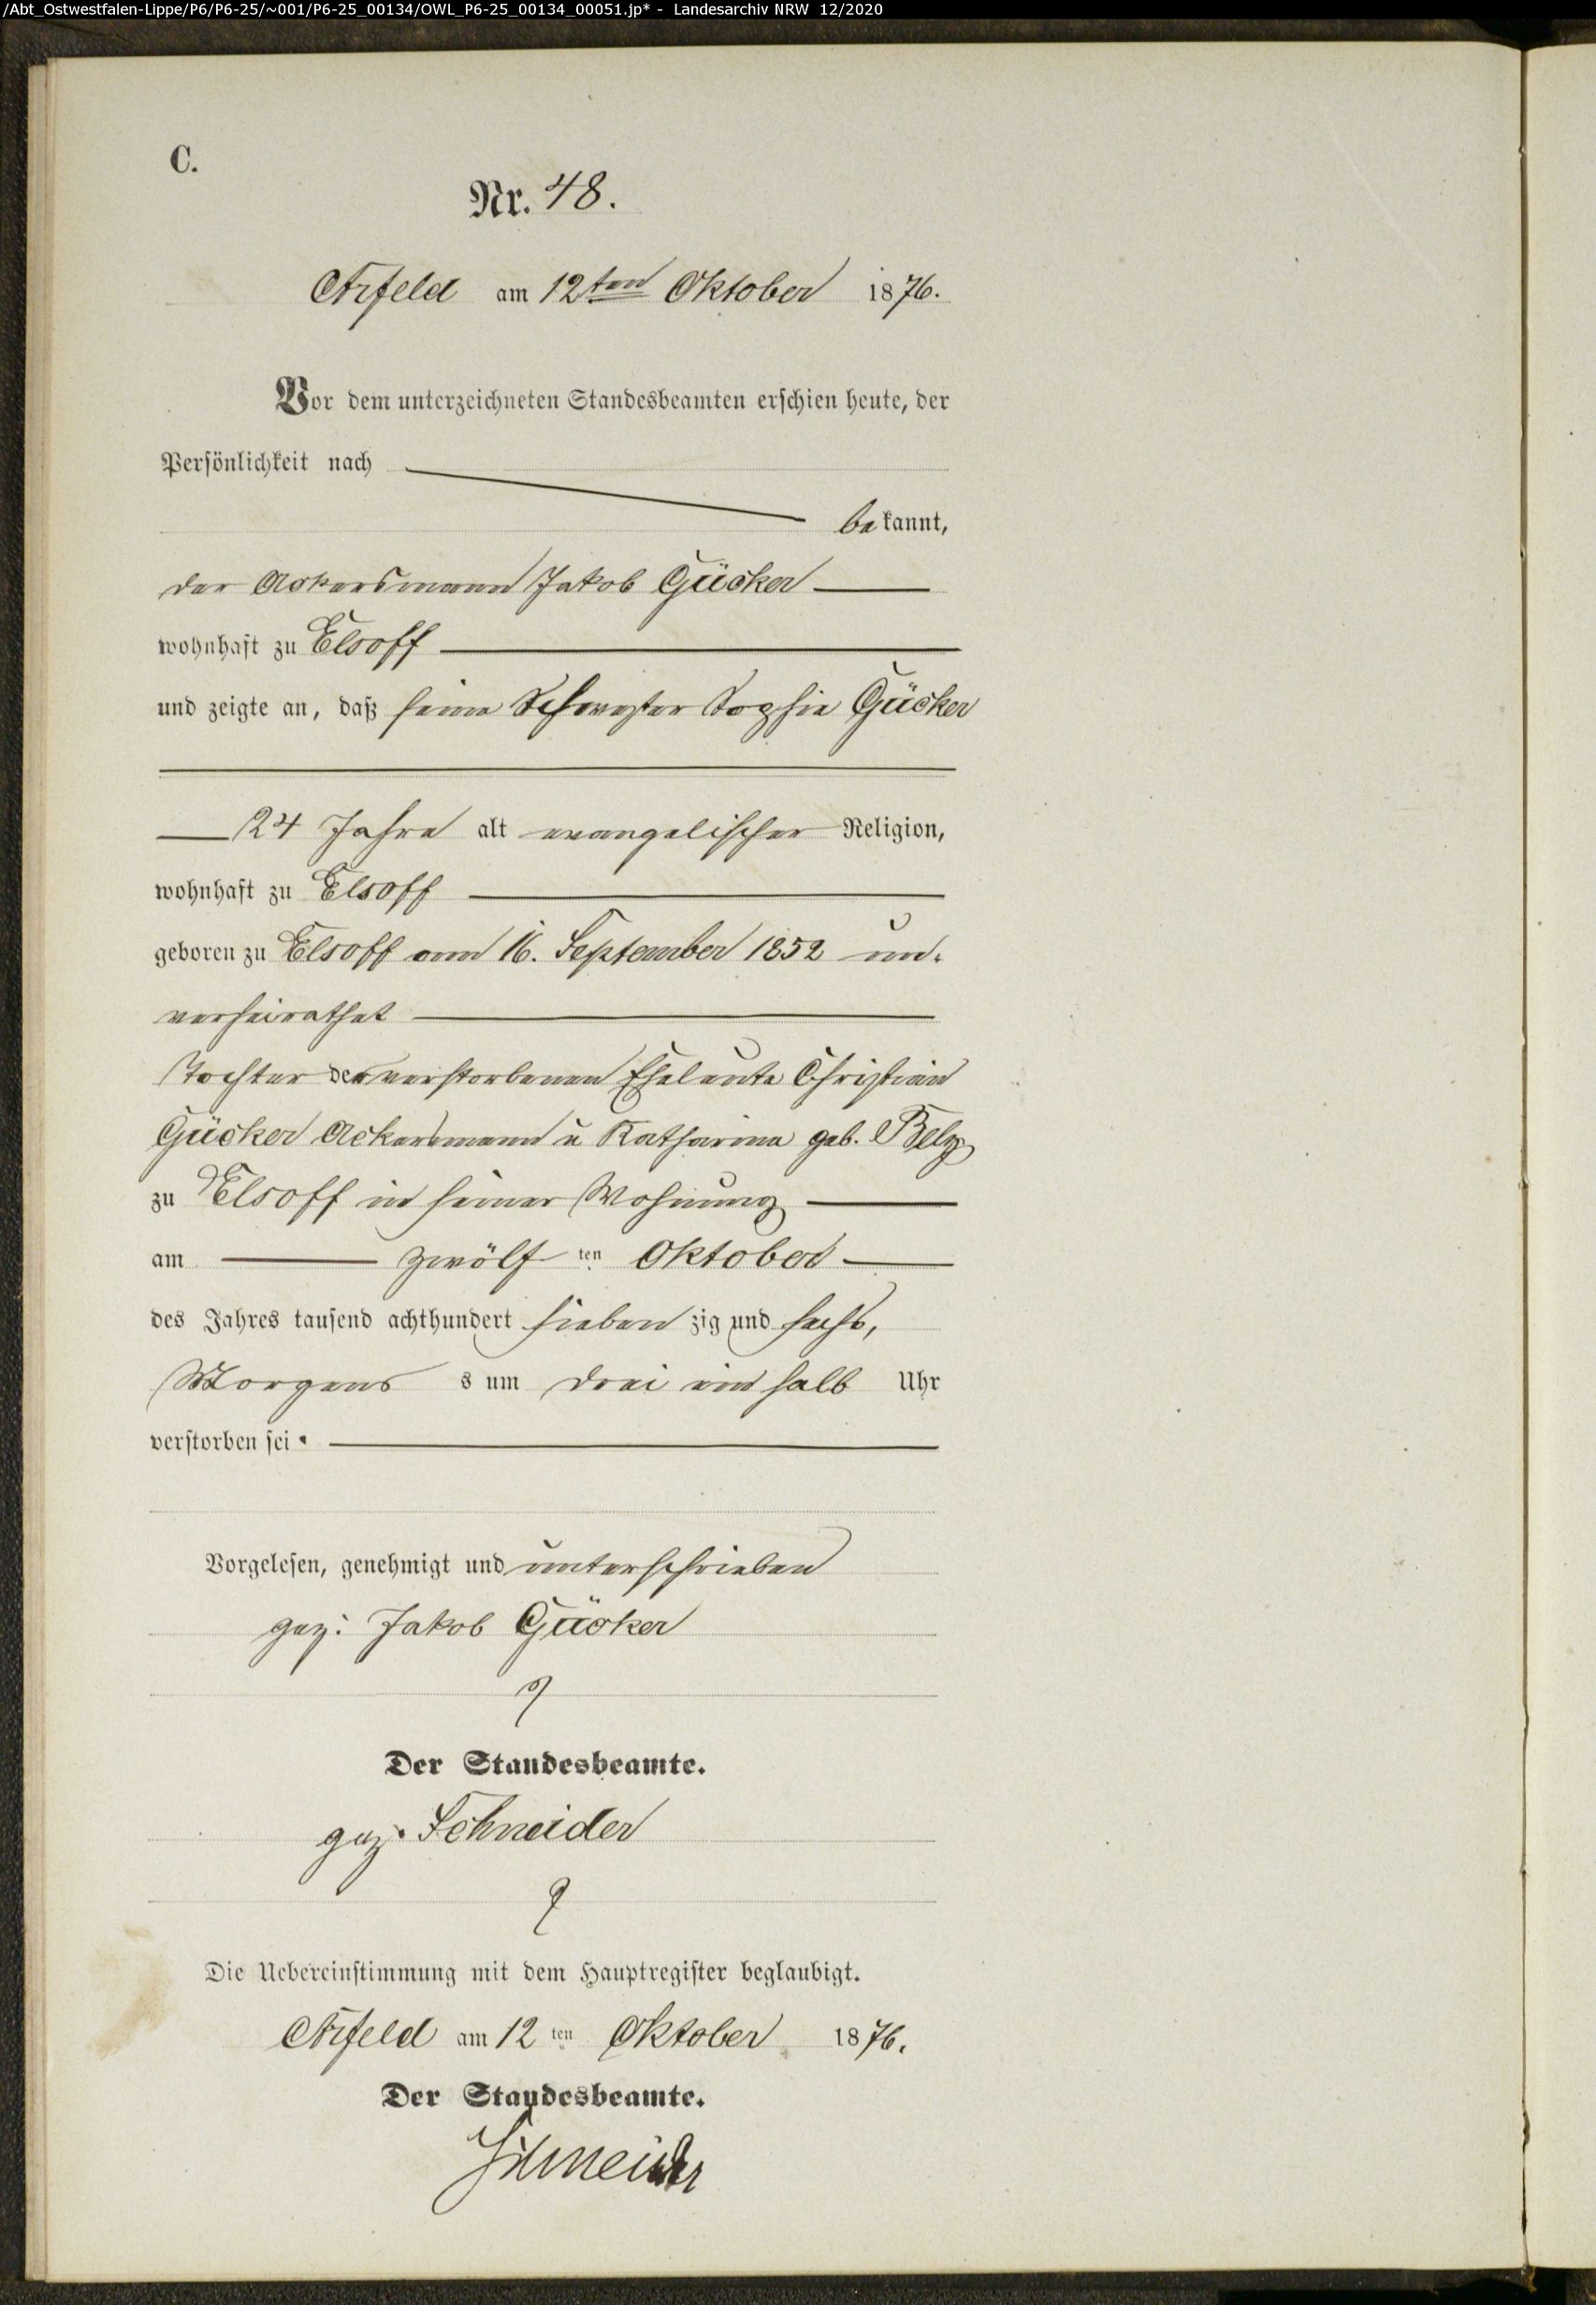 /Abt_Ostwestfalen-Lippe/P6/P6-25/~001/P6-25_00134/OWL_P6-25_00134_00051.jp* - Landesarchiv NRW 12/2020
C.
Nr. 48.
Arfeld am 12ten Oktober 1876.
Vor dem unterzeichneten Standesbeamten erschien heute, der
Persönlichkeit nach
bekannt,
der Ackersmann Jakob Gücker
wohnhaft zu Elsoff
und zeigte an, daß seine Schwester Sophie Gücker
24 Jahre alt evangelischer Religion,
wohnhaft zu Elsoff
geboren zu Elsoff am 16. September 1852 un-
verheirathet
Tochter der verstorbenen Eheleute Christian
Gücker Ackersmann u Katharina geb. Belz
zu Elsoff in seiner Wohnung
am zwölf ten Oktober
des Jahres tausend achthundert sieben zig und sechs,
Morgens s um drei ein halb Uhr
verstorben sei.
Vorgelesen, genehmigt und unterschrieben
gez: Jakob Gücker
Der Standesbeamte.
gez. Schneider
Die Uebereinstimmung mit dem Hauptregister beglaubigt.
Arfeld am 12 ten Oktober 1876.
Der Standesbeamte.
Schneider